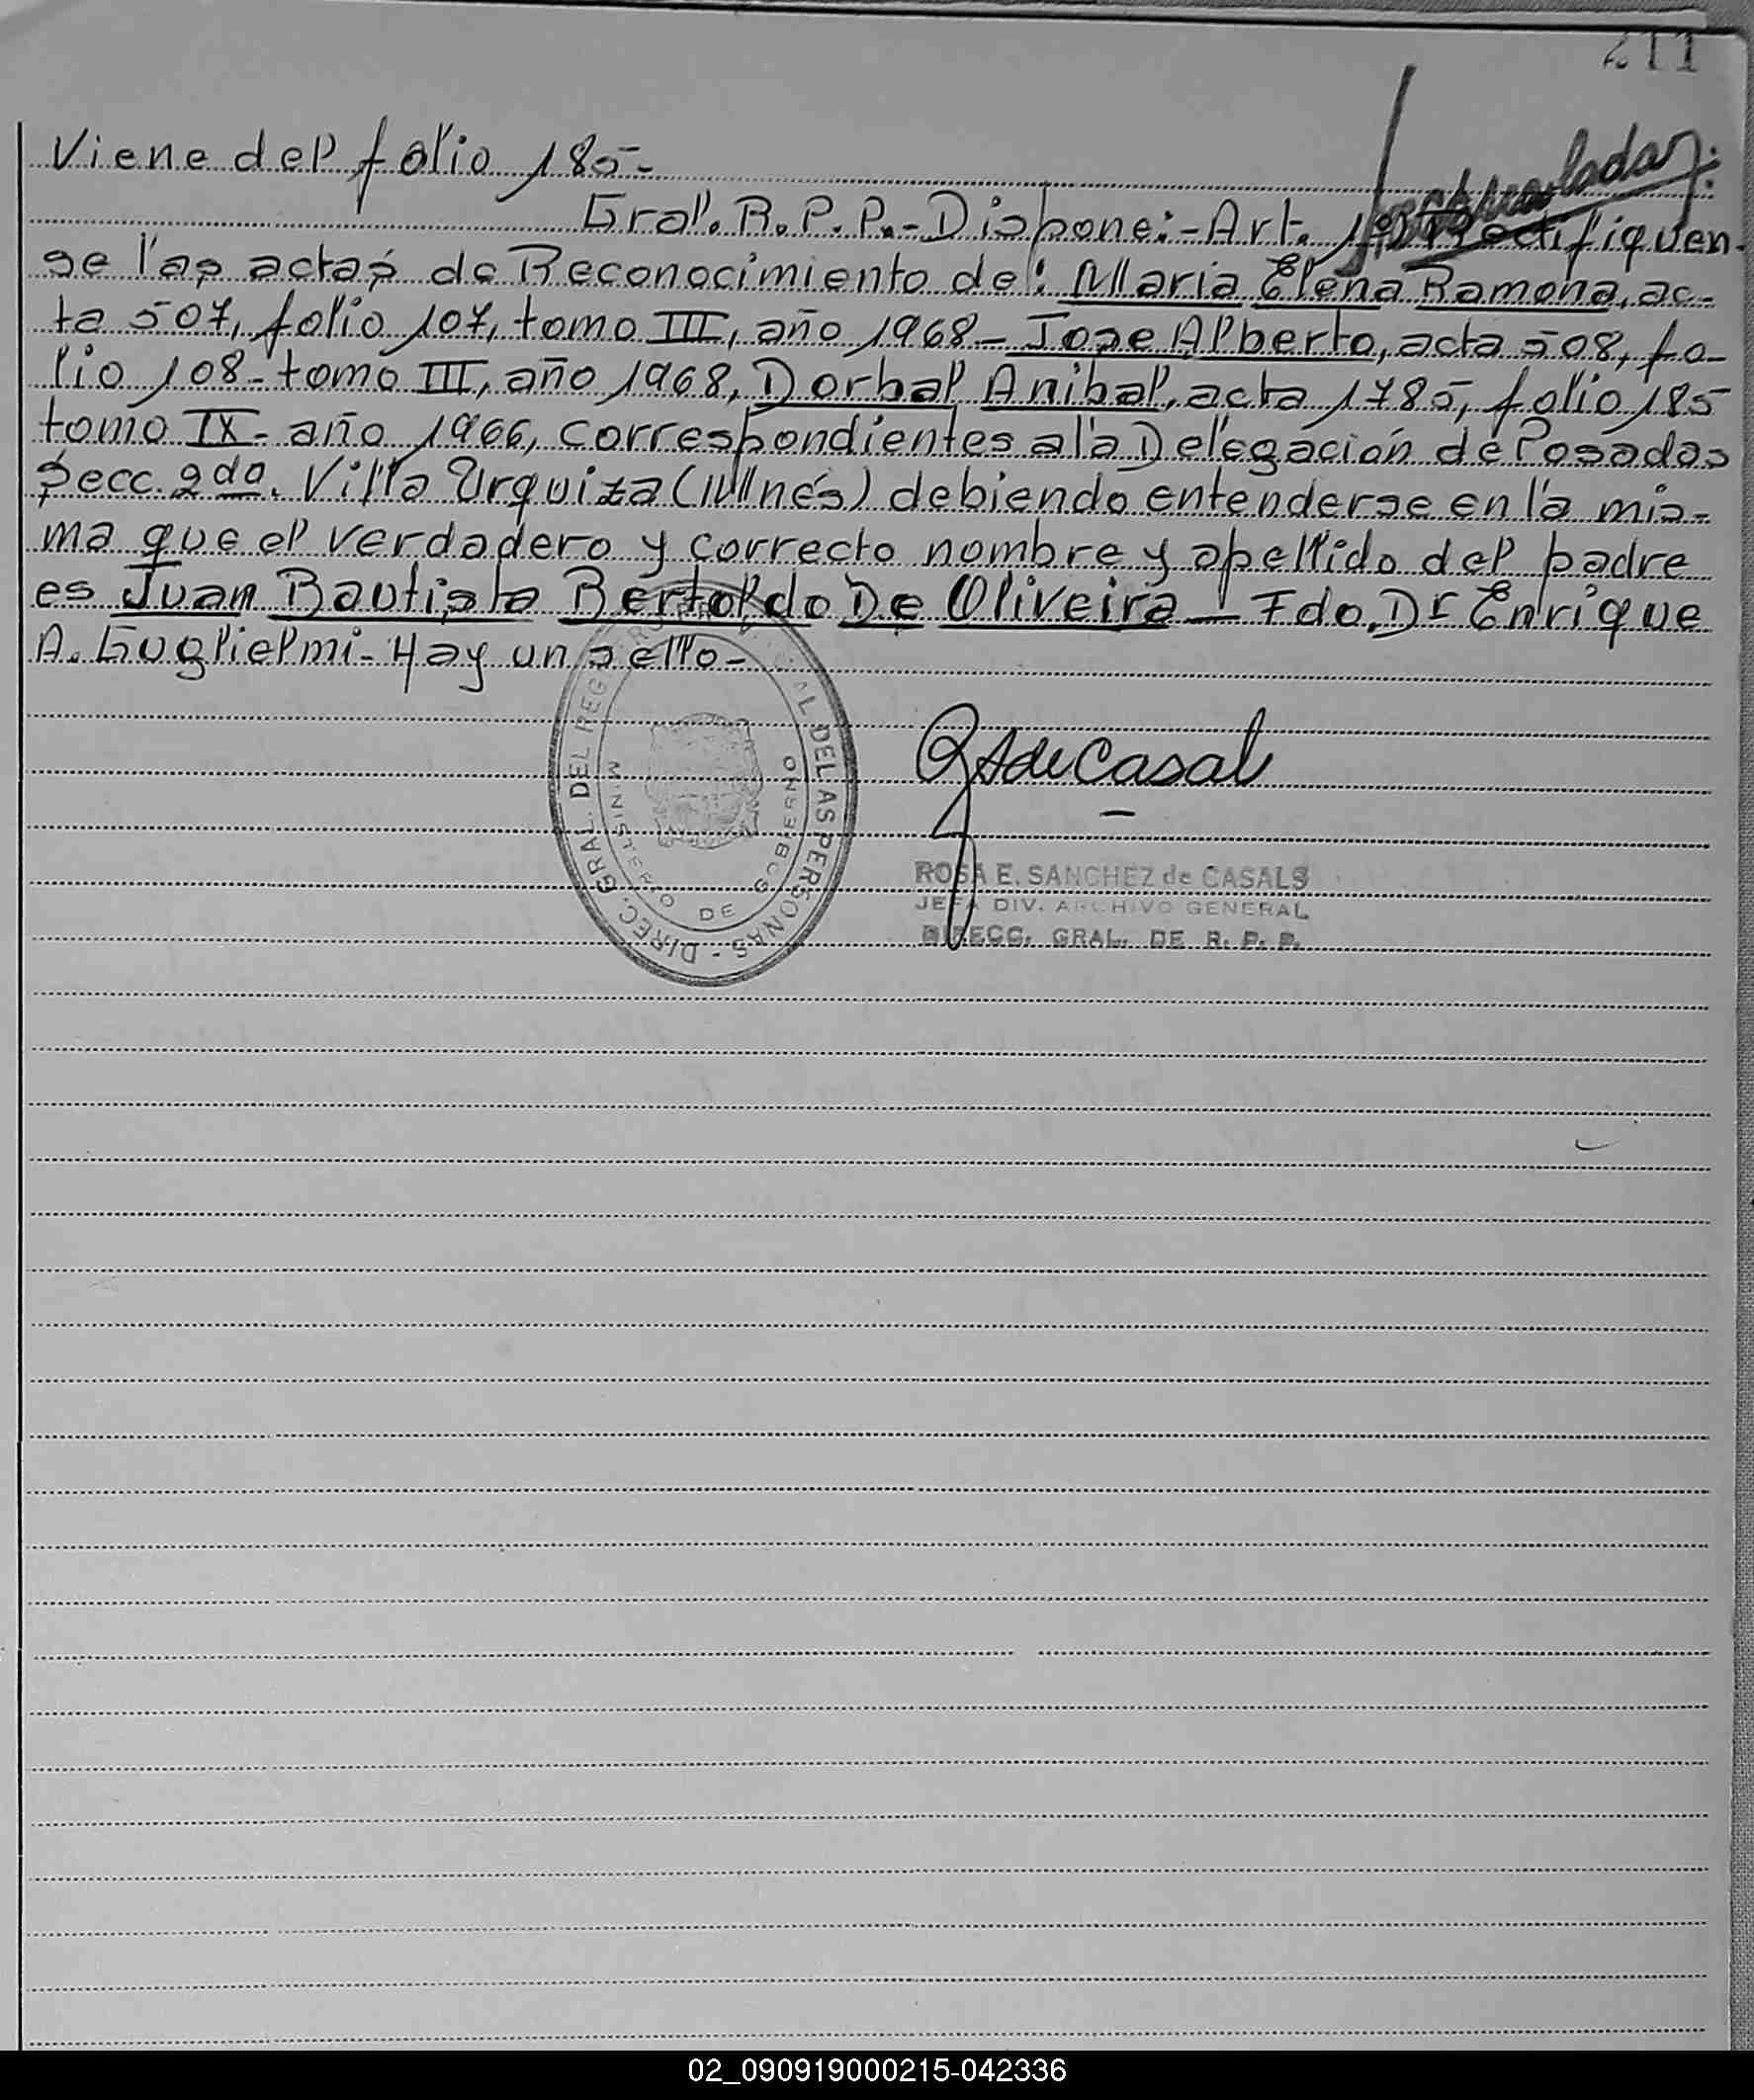 211
Viene del folio 185-
Gral. R.P.P.-Dispone:-Art. 1º) Rectifiquen-
se las actas de Reconocimiento de: Maria Elena Ramona, ac-
ta 507, folio 107, tomo III, año 1968- Jose Alberto, acta 508, fo-
lio 108- tomo III, año 1968, Dorbal Anibal, acta 1785, folio 185
tomo IX- año 1966, correspondientes a la Delegación de Posadas
Secc. 2da. Villa Urquiza (Mnes) debiendo entenderse en la mis-
ma que el verdadero y correcto nombre y apellido del padre
es Juan Bautista Bertoldo De Oliveira - Fdo. Dr Enrique
A. Guglielmi- Hay un sello-
DIREC. GRAL. DEL REGISTRO DEL AS PERSONAS -
MINISTERIO DE GOBIERNO
RSdeCasal
ROSA E. SANCHEZ de CASALS
JEFA DIV. ARCHIVO GENERAL
DIRECC. GRAL. DE R. P. P.
02_090919000215-042336